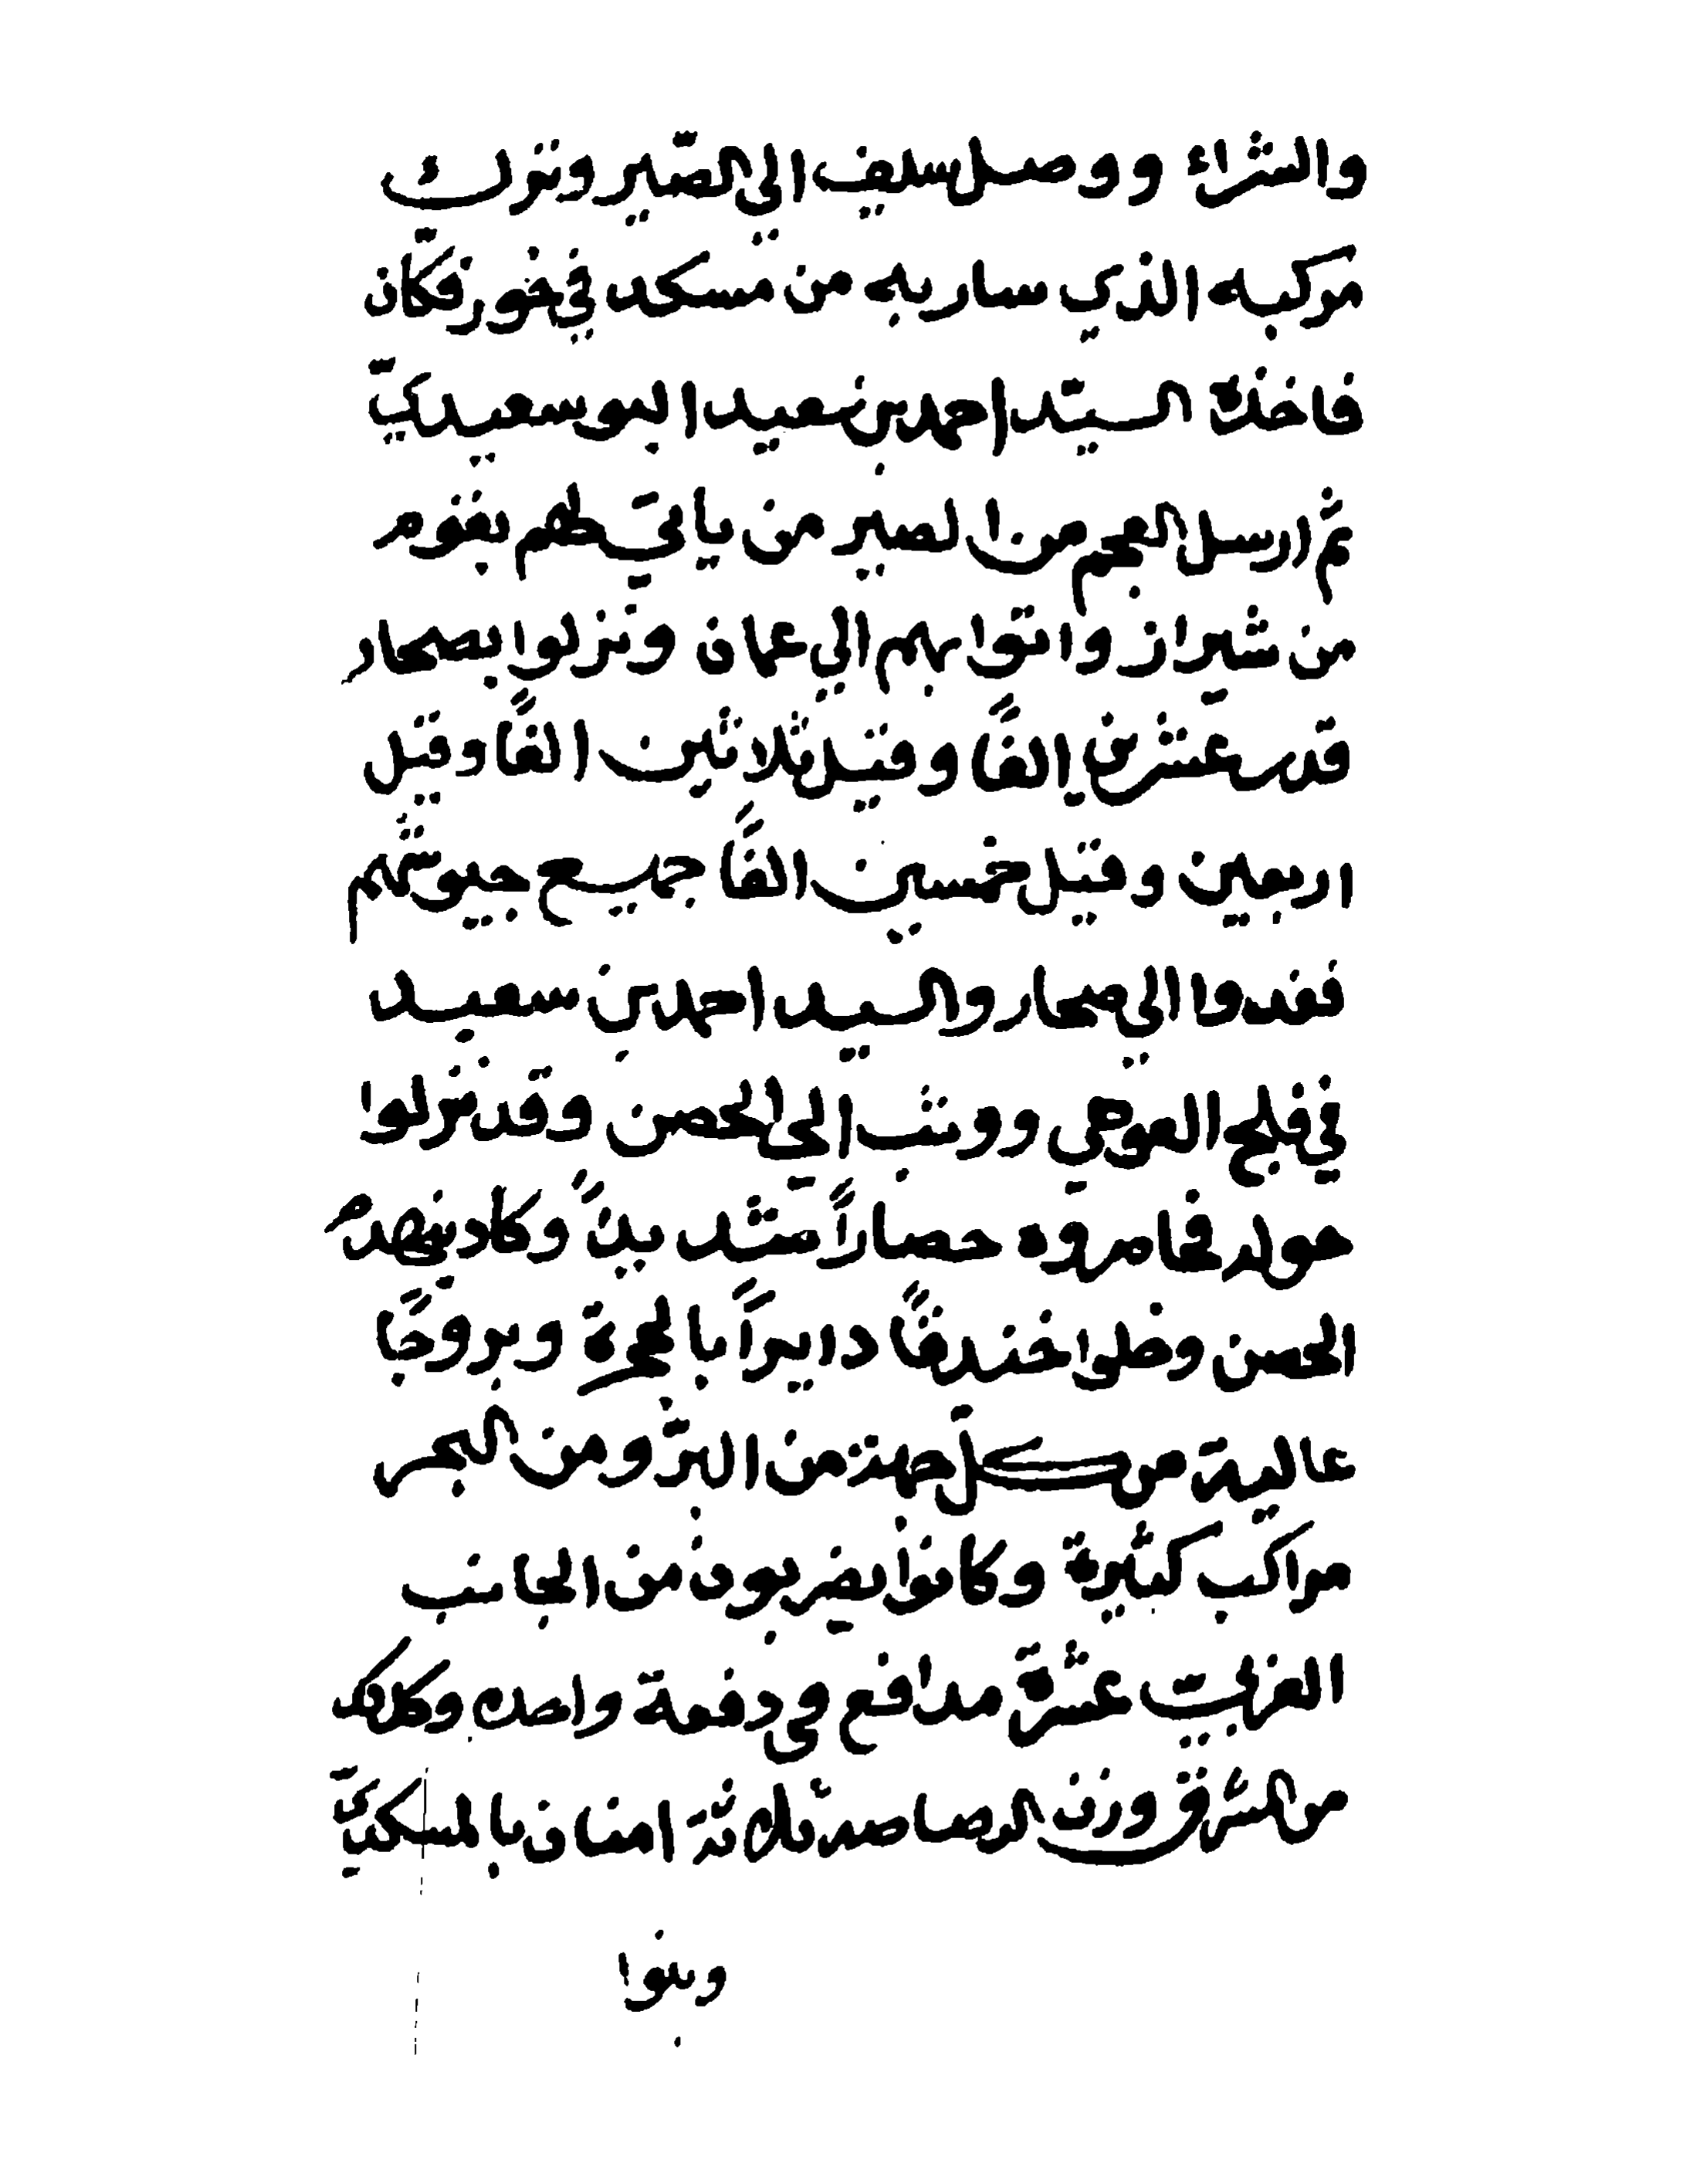 والشراء ووصل سليف الي الصّير وترك
مركبه الذي سار به من مسكد في خور فكّان
فاخذه السيّد احمد بن سعيد البوسعيديّ
ثم ارسل العجم من الصير من ياتي لهم بقوم
من شيراز واتوا بهم الي عمان ونزلوا بصحار
قدر عشرين الفًا وقيل ثلاثين الفًا وقيل
اربعين وقيل خمسين الفًا جميع جيوشهم
فغدوا الي صحار والسيد احمد بن سعيد
في فلج العوهي ووثب الي الحصن وقد نزلوا
حوله حصاراً شديداً وكاد ينهدم
الحصن وخلوا خندقًا دايراً بالحجرة وبروجًا
عالية من كل جهة من البرّ ومن البحر
مراكب كثيرة وكانوا يضربون من الجانب
الغربي عشرة مدافع في دفعة واحده وكذلك
من الشرق وزن الرصاصه ثلاثة امنان بالمسكديّ
وبنوا